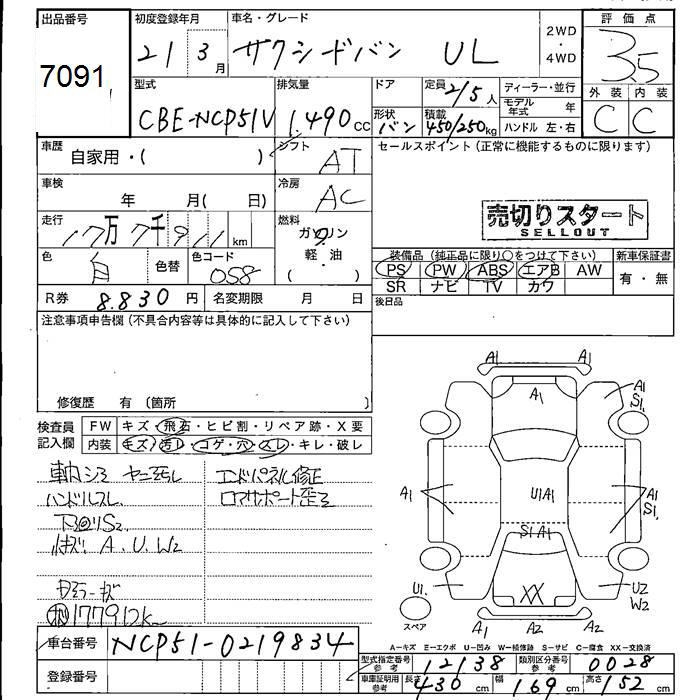 出品番号
7091
初度登録年月
21 3 月
車名・グレード
サクシードバン UL
2WD
・
4WD
評価点
3.5
外装 内装
C C
型式
CBE-NCP51V
排気量
1,490 cc
ドア
形状
バン
定員 2/5 人
積載
450/250 kg
ディーラー・並行
モデル
年式 年
ハンドル 左・右
車歴
自家用・( )
シフト
AT
車検
年 月( 日)
冷房
AC
走行
17万7千911 km
燃料
ガソリン
軽・油
( )
色
白
色替
色コード
058
R券 8.830 円
名変期限 月 日
セールスポイント(正常に機能するものに限ります)
売切りスタート
SELLOUT
装備品(純正品に限り○をつけて下さい)
新車保証書
PS PW ABS エアB AW
有・無
SR ナビ TV カワ
後日品
注意事項申告欄(不具合内容等は具体的に記入して下さい)
修復歴 有 (箇所 )
検査員
記入欄
FW キズ・飛石・ヒビ割・リペア跡・X要
内装 キズ・汚れ・コゲ・穴・スレ・キレ・破レ
車内シミ ヤニ汚レ
ハンドルスレ
下廻りS2
A.U.W2
177912K
エンドパネル修正
コアサポート歪ミ
A1 A1
A1
A1
S1.
A1
U1A1
A1
S1.
S1 A1
U1.
XX
U2
W2
スペア
A1 A2 A2
A=キズ E=エクボ U=凹み W=補修跡 S=サビ C=腐食 XX=交換済
車台番号 NCP51-0219834
登録番号
型式指定番号
参考
12138
類別区分番号
参考
0028
車庫証明用
参考
長さ 430 cm 幅 169 cm 高さ 152 cm